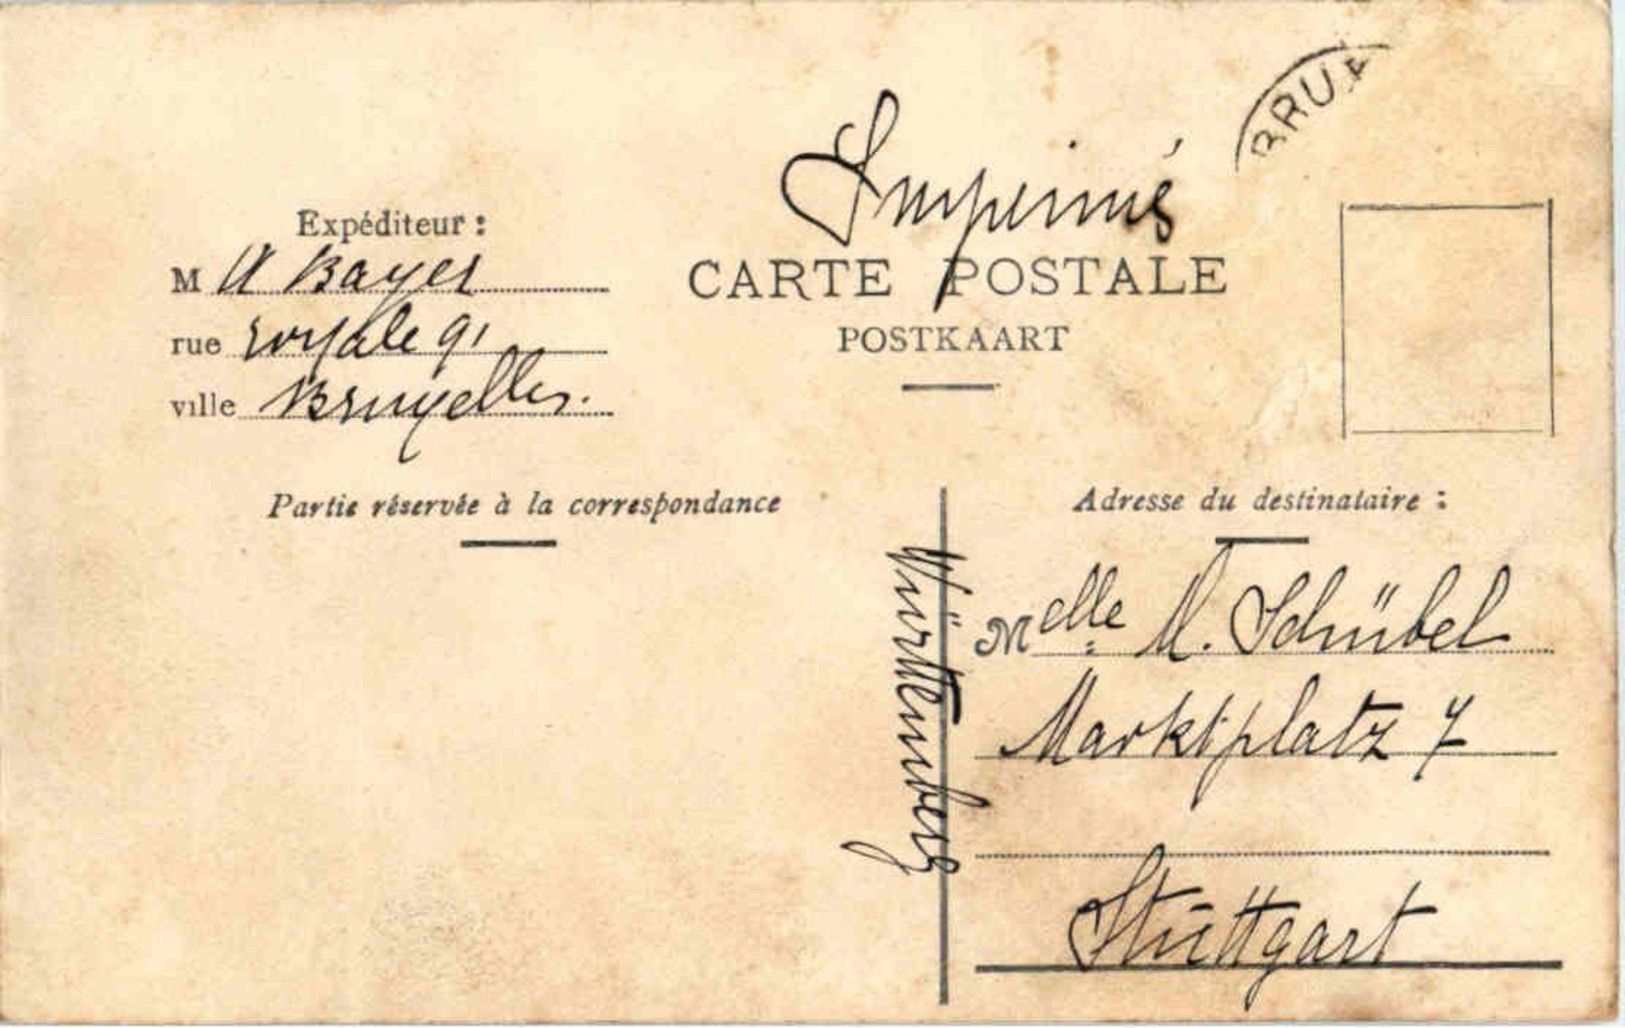 BRUX
Imprimés
CARTE POSTALE
POSTKAART
Expéditeur :
M A Bayer
rue royale 91
ville Bruxelles.
Partie réservée à la correspondance
Adresse du destinataire :
Melle M. Schübel
Marktplatz 7
Stuttgart
Württemberg